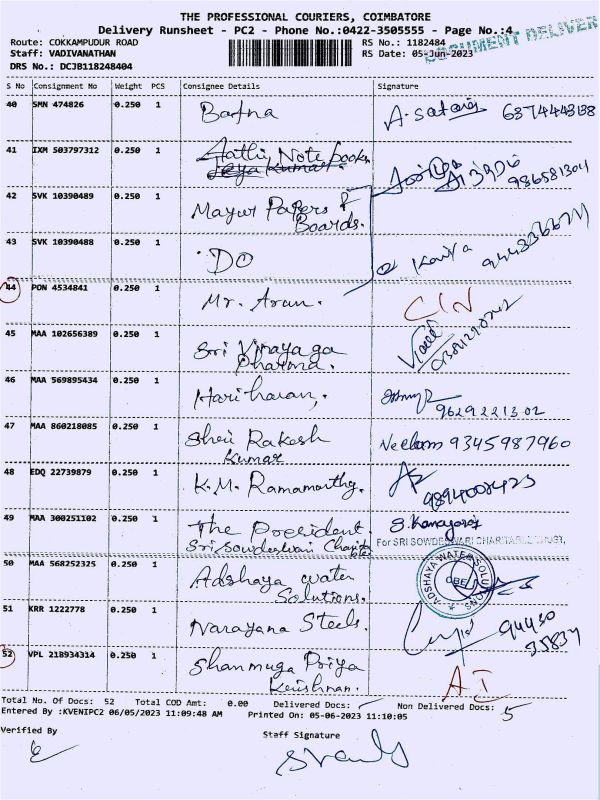 THE PROFESSIONAL COURIERS, COIMBATORE
Delivery Runsheet - PC2 - Phone No.:0422-3505555 - Page No.:4
Route: COKKAMPUDUR ROAD
RS No.: 1182484
Staff: VADIVANATHAN
RS Date: 05-Jun-2023
DOCUMENT DELIVER
DRS No.: DCJB118248404
S No Consignment No Weight PCS Consignee Details Signature
40 SMN 474826 0.250 1 Bafna 6374443138
41 IXM 503797312 0.250 1 Note books 986581304
42 SVK 10390489 0.250 1 Mayur Papers &
Boards.
43 SVK 10390488 0.250 1 DO Kavya
44 PON 4534841 0.250 1 Mr. Arun. CIN
45 MAA 102656389 0.250 1 Sri Vinayaga
Pharma.
46 MAA 569895434 0.250 1 Hariharan, 9629221302
47 MAA 860218085 0.250 1 Shri Rakesh
Kumar
Neelam 9345987960
48 EDQ 22739879 0.250 1 K.M. Ramamorthy.
49 MAA 300251102 0.250 1 The President.
Sri Sowdeswari
S. Kanagaraj
For SRI SOWDESWARI CHARITABLE TRUST,
50 MAA 568252325 0.250 1 Adshaya water
Solutions.
ADSHAYA WATER SOLUTIONS
CBE
51 KRR 1222778 0.250 1 Narayana Steels. 94430
25834
52 VPL 218934314 0.250 1 Shanmuga Priya
Krishnan.
A I
Total No. Of Docs: 52 Total COD Amt: 0.00 Delivered Docs: Non Delivered Docs: 5
Entered By :KVENIPC2 06/05/2023 11:09:48 AM Printed On: 05-06-2023 11:10:05
Verified By
Staff Signature